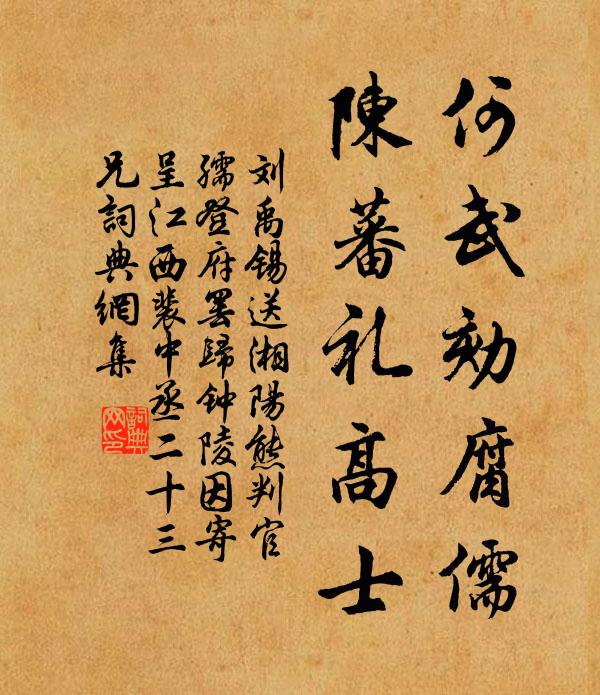 何武劾腐儒
陳蕃礼高士
刘禹锡送湘陽熊判官
孺登府罢歸钟陵因寄
呈江西裴中丞二十三
兄詞典網集
詞典
网印